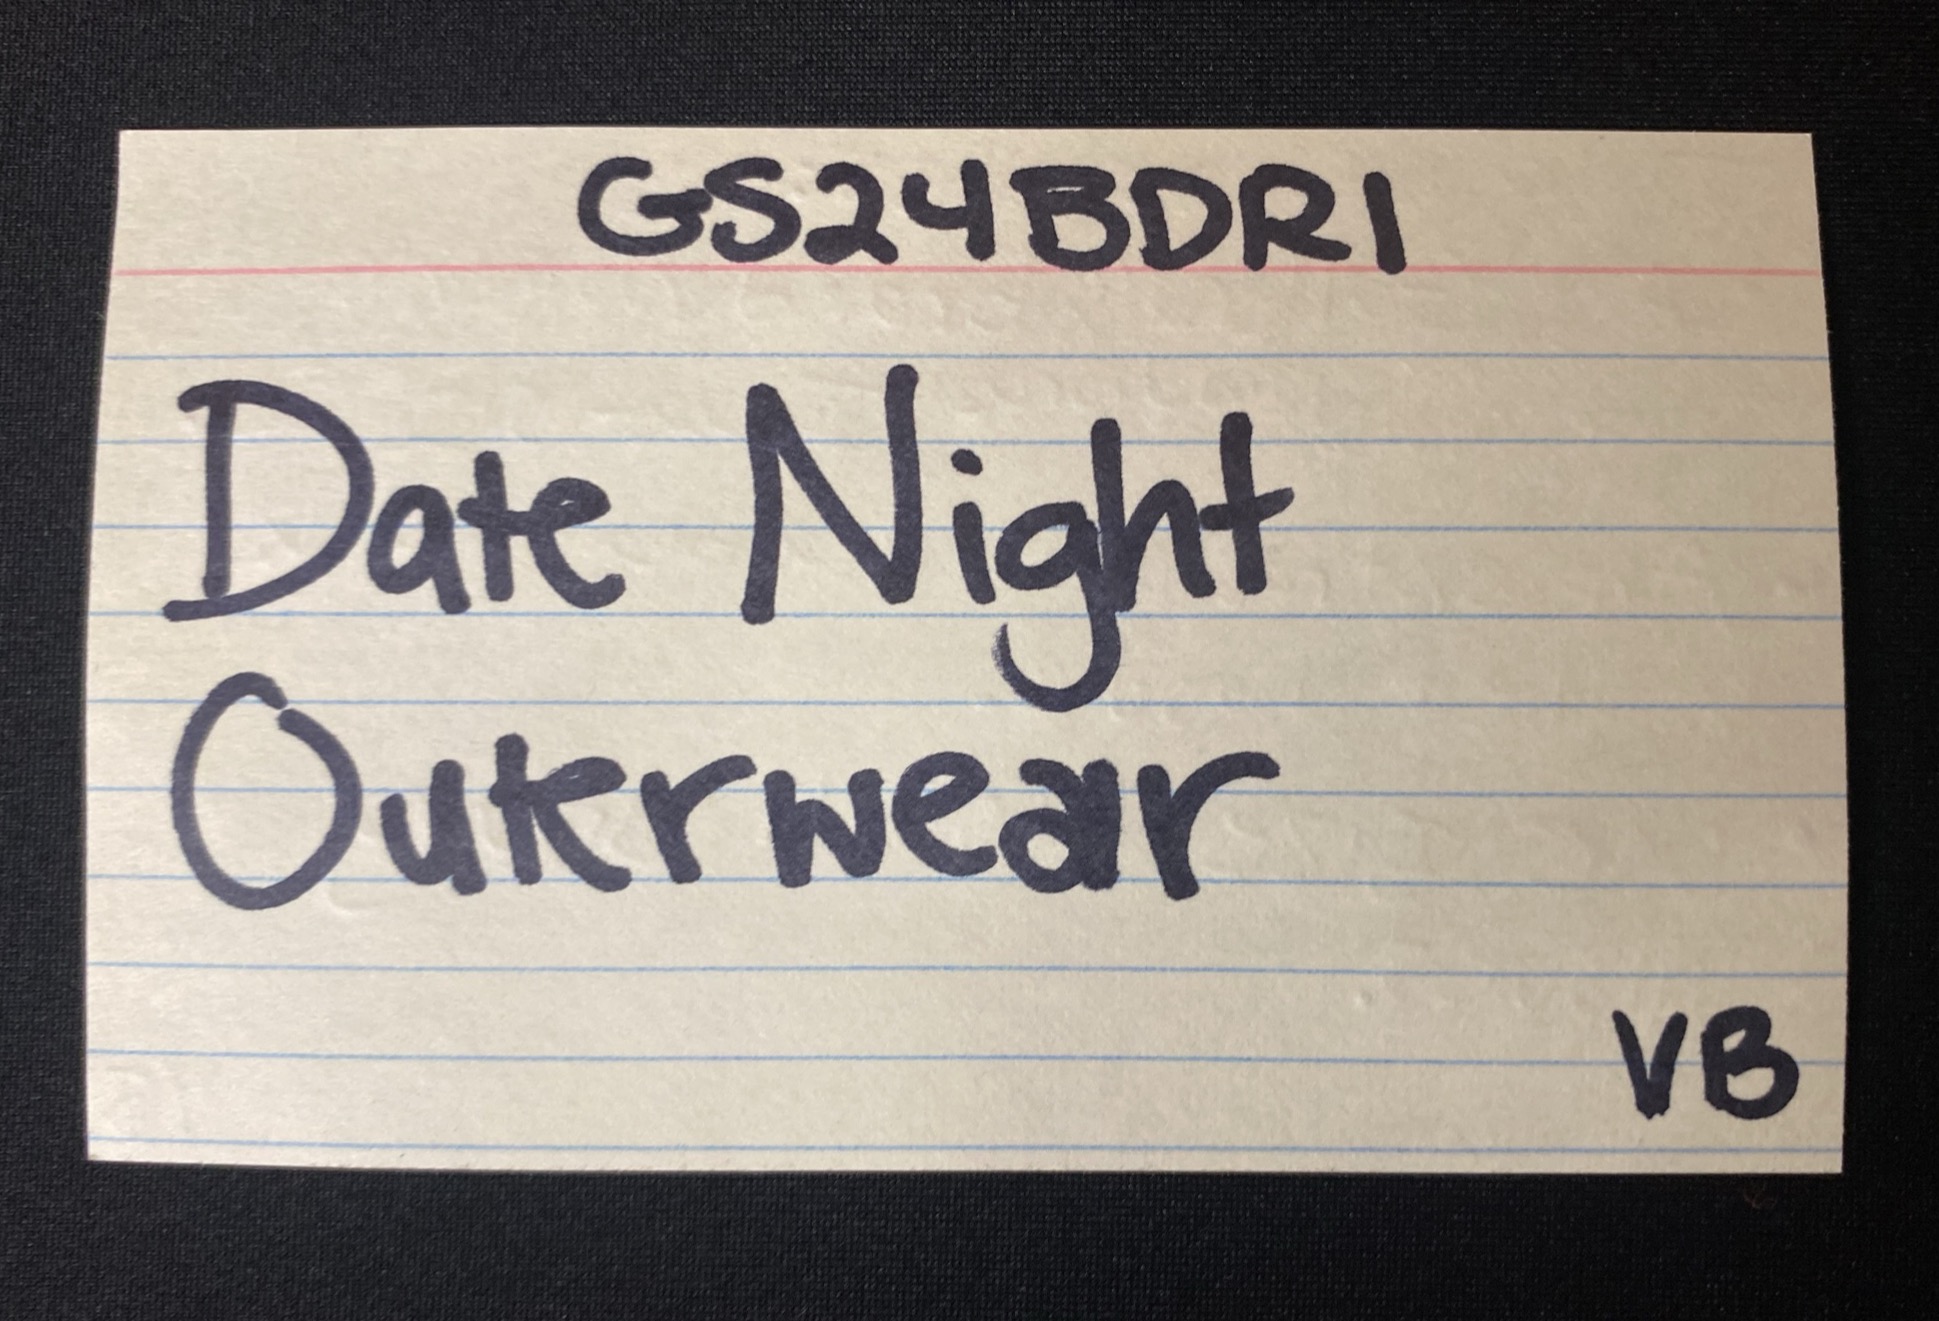 GS24BDR1
Date Night
Outerwear
VB